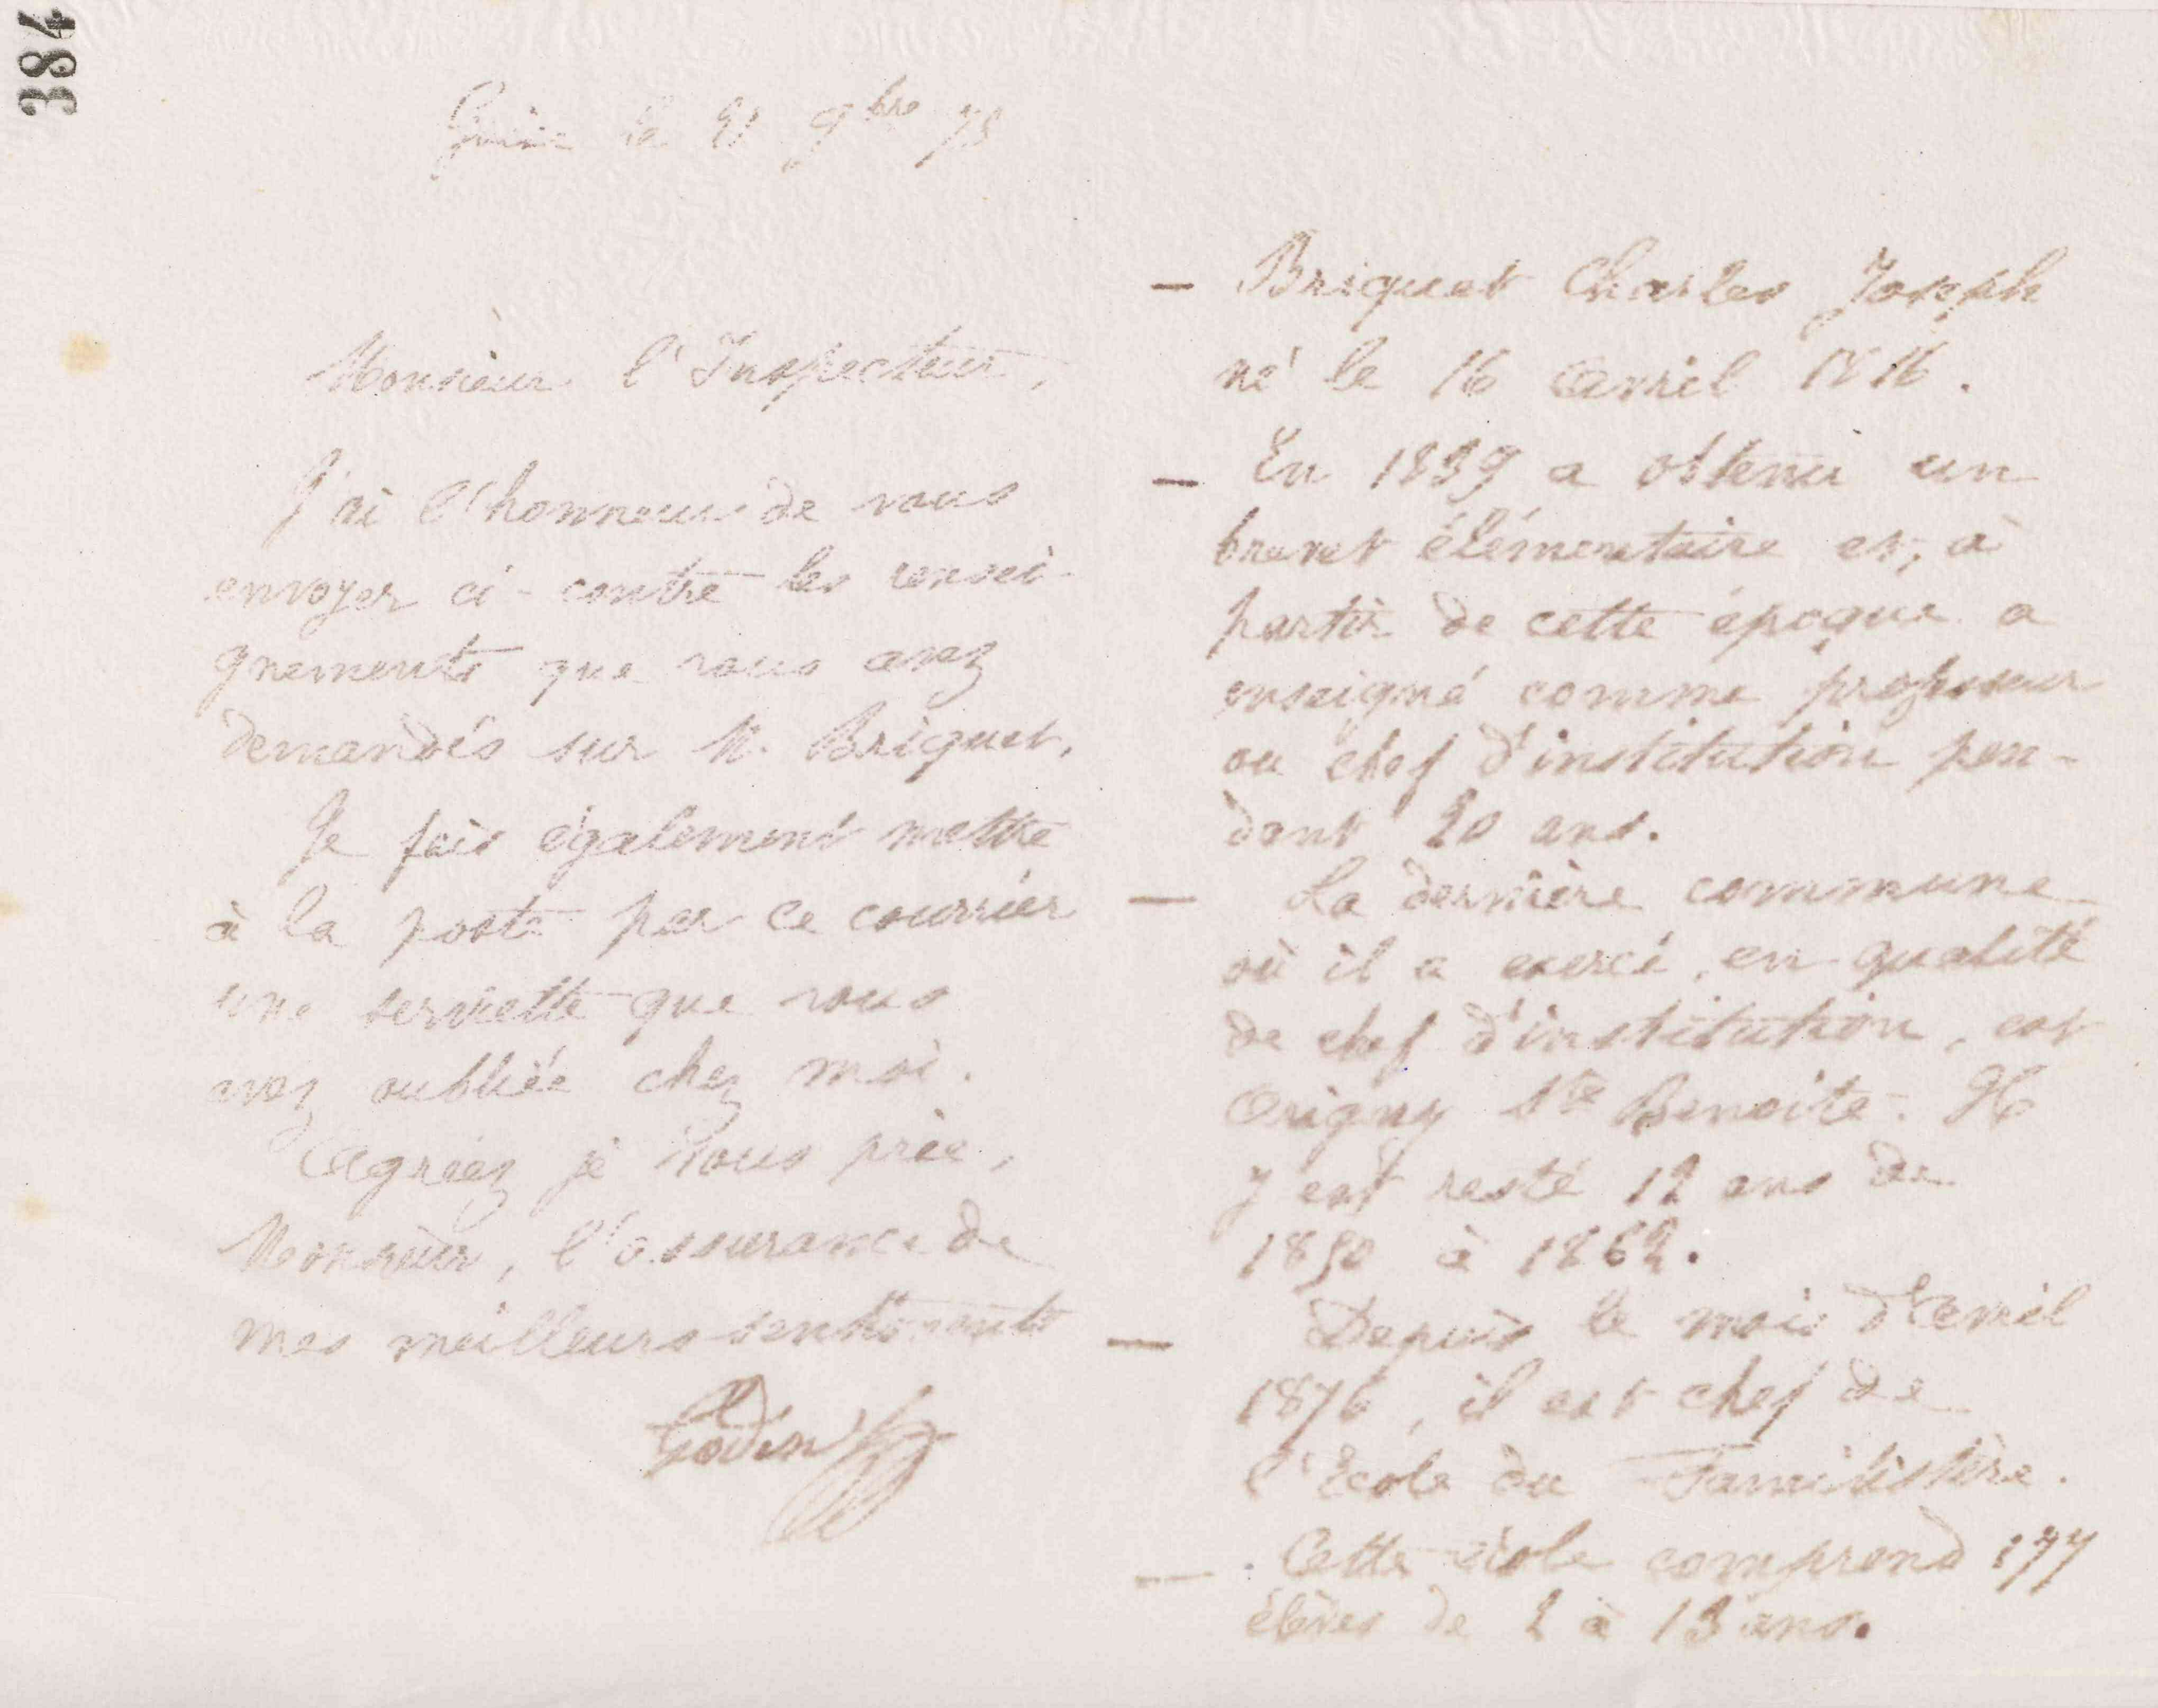 384
Guise le 21 9bre 78
Monsieur l'Inspecteur,
J'ai l'honneur de vous
envoyer ci-contre les rensei-
gnements que vous avez
demandés sur M. Briquet.
Je fais également mettre
à la poste par ce courrier
une serviette que vous
avez oubliée chez moi.
Agréez je vous prie,
Monsieur, l'assurance de
mes meilleurs sentiments
Godin
— Briquet Charles Joseph
né le 16 avril 1816.
— En 1839 a obtenu un
brevet élémentaire et, à
partir de cette époque a
enseigné comme professeur
ou chef d'institution pen-
dant 20 ans.
— La dernière commune
où il a exercé, en qualité
de chef d'institution, est
Origny Ste Benoite. Il
y est resté 12 ans de
1850 à 1862.
— Depuis le mois d'avril
1876, il est chef de
l'Ecole du Familistère.
— Cette école comprend 177
élèves de 2 à 13 ans.